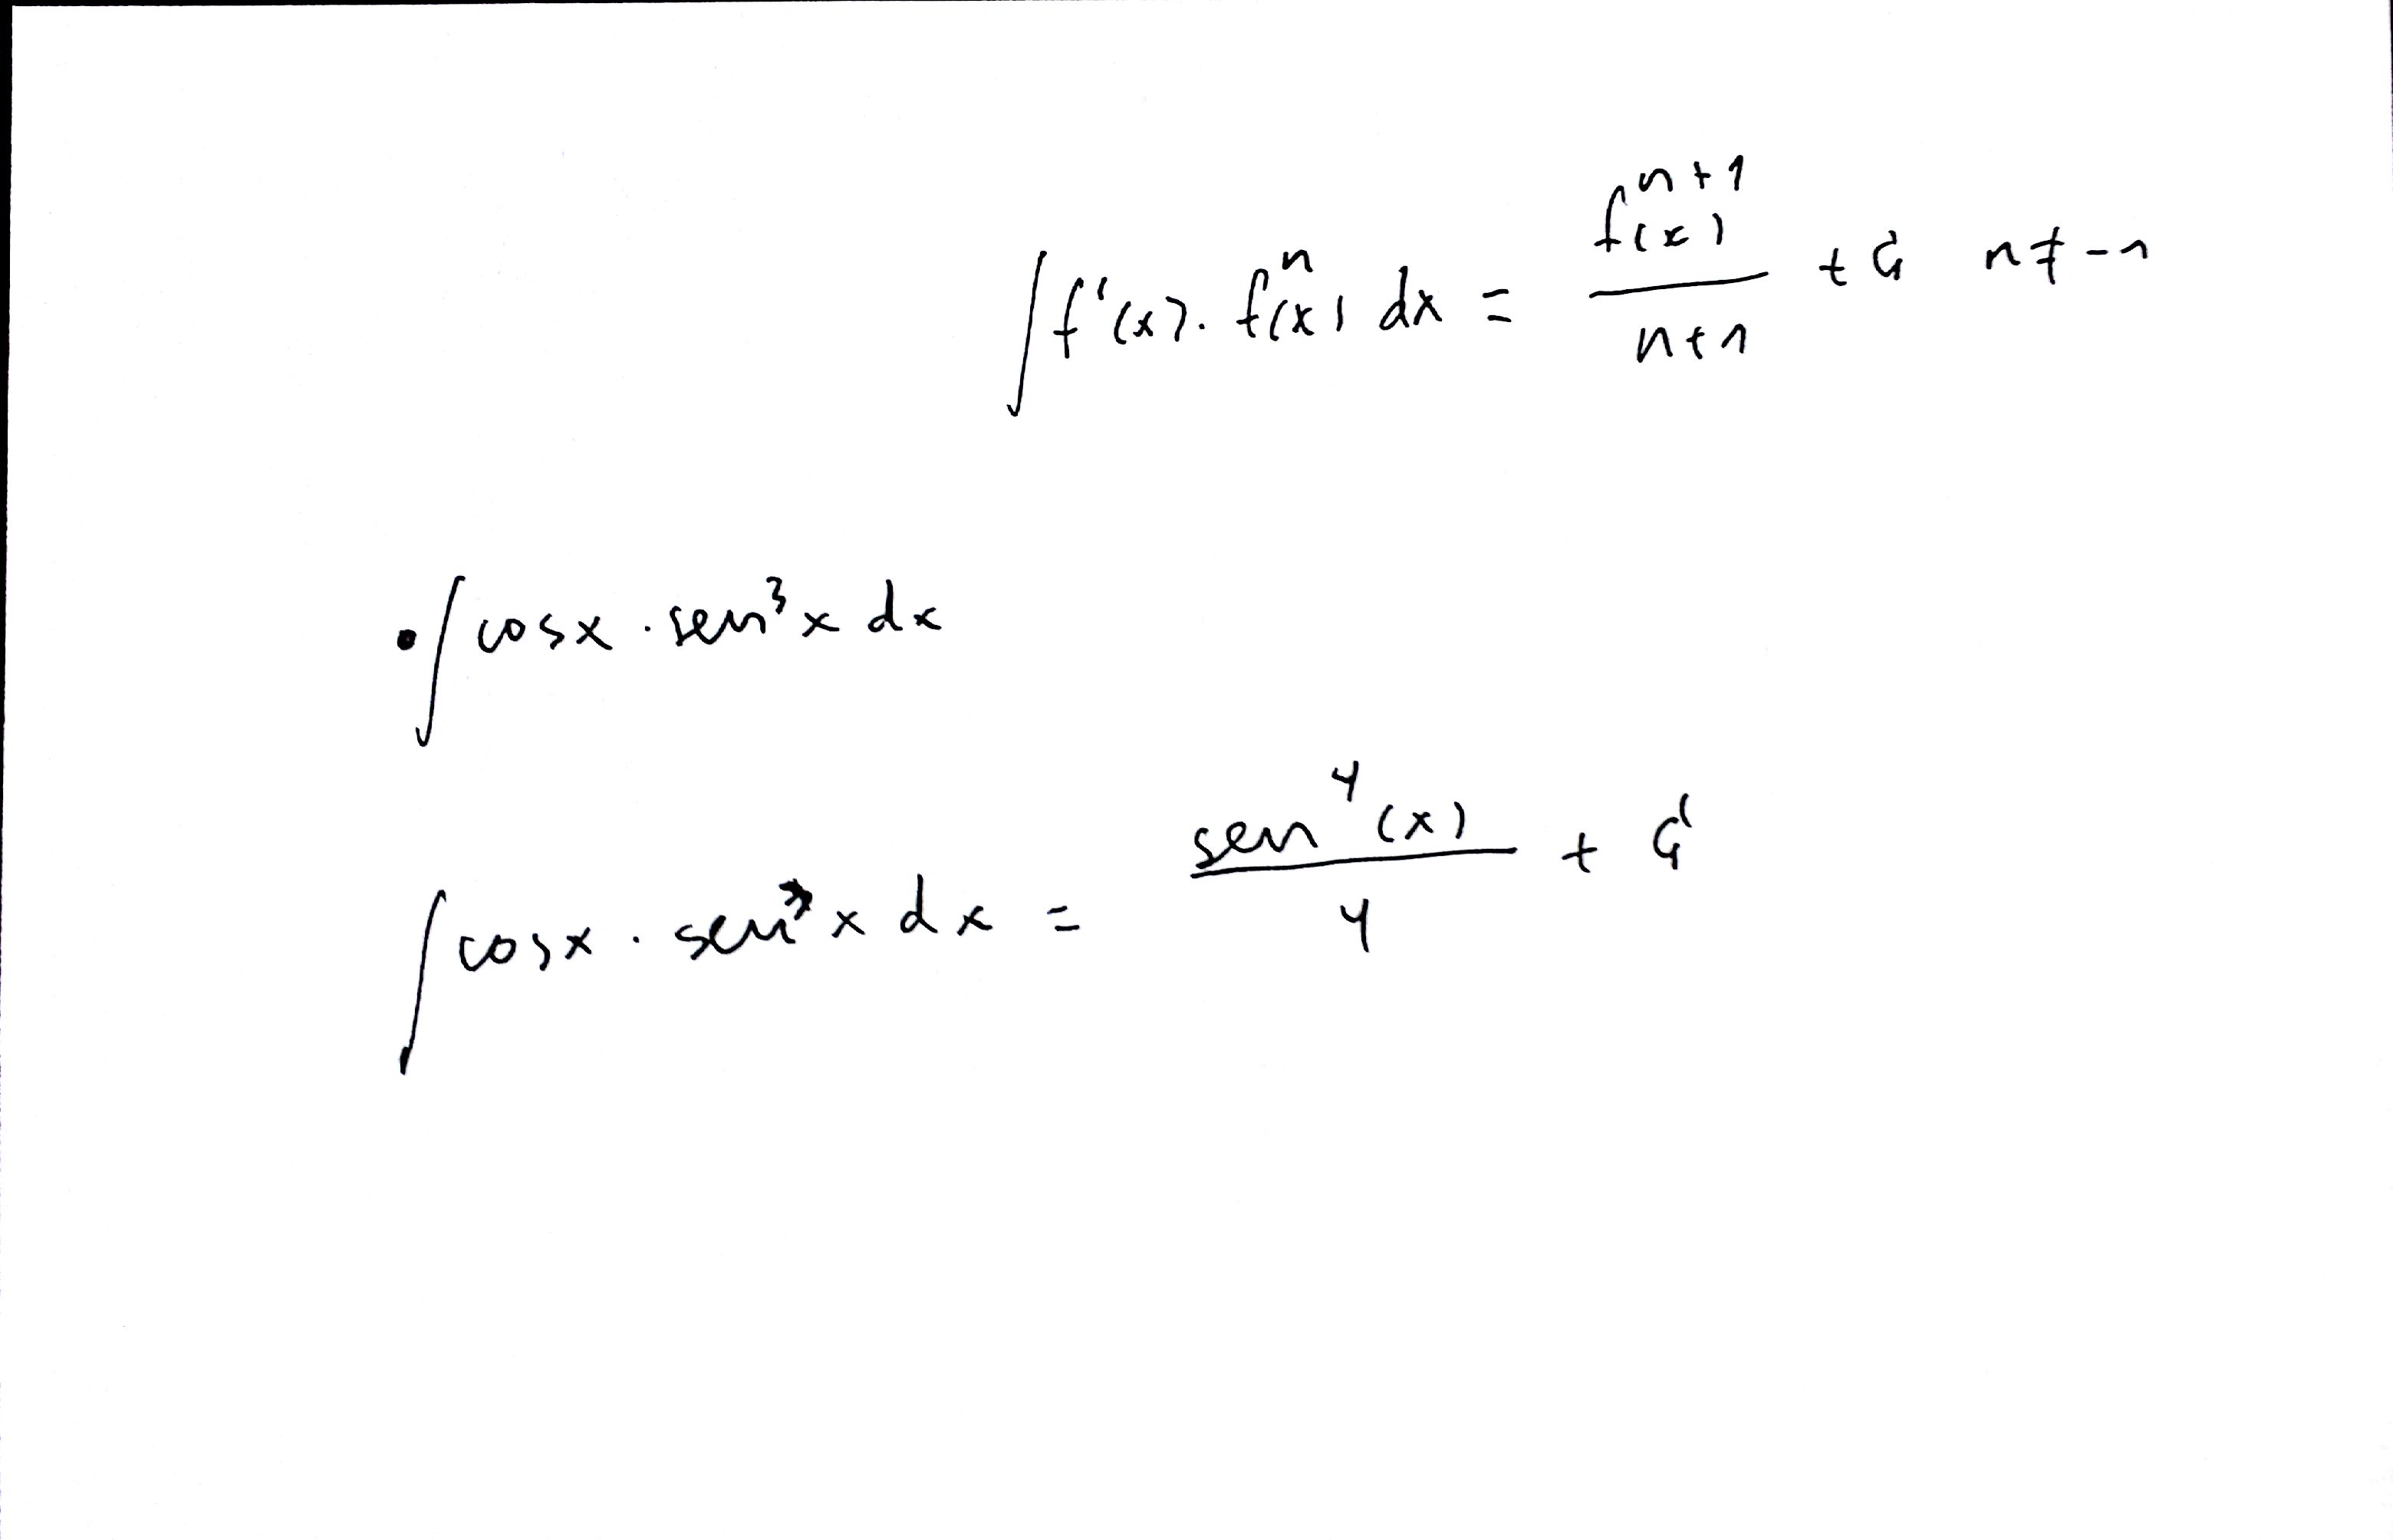 ∫ f'(x). f^n(x) dx = f^{n+1}(x) / n+1 + C n ≠ -1
• ∫ cosx . sen³x dx
∫ cosx . sen³x dx = sen⁴(x) / 4 + C